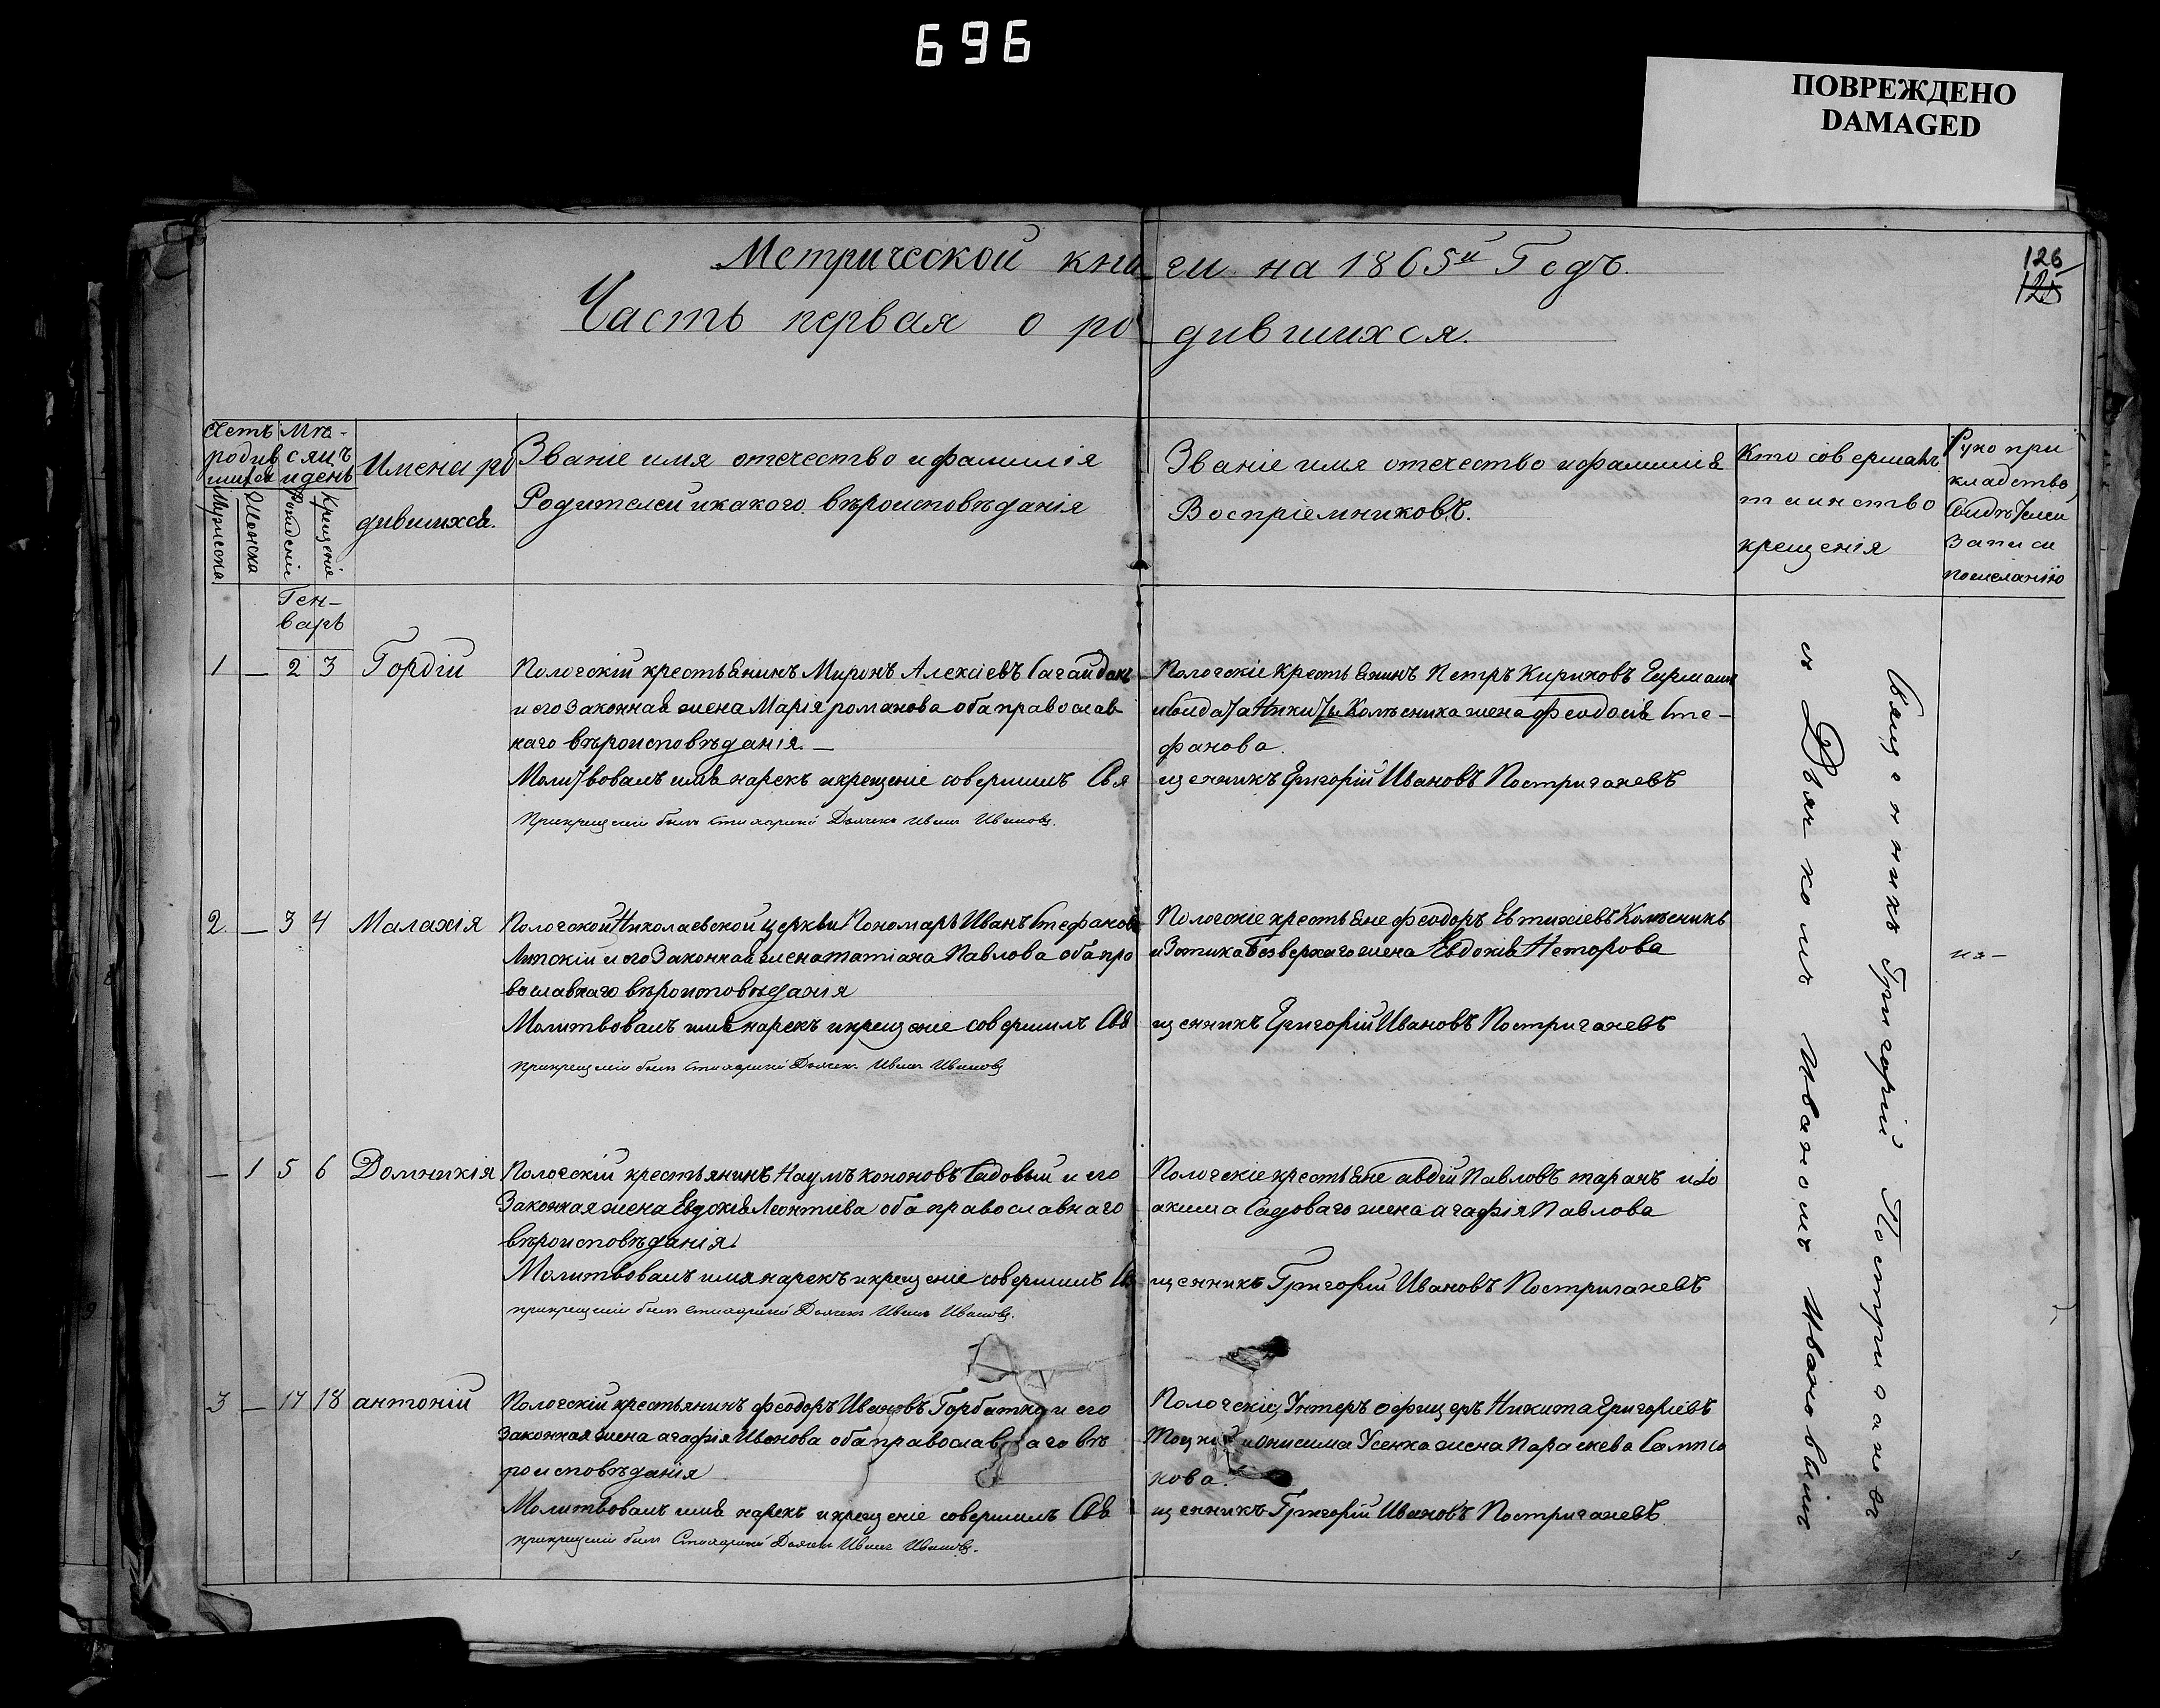 696
ПОВРЕЖДЕНО
DAMAGED
126
125
Метрической книги на 1865й Годъ.
Часть первая о родившихся.
Счетъ родившихся
Мужеска
Женска
Мѣсяцъ и день
Рожденія
Крещенія
Имена родившихся.
Званіе имя отечество и фамилія
Родителей и какого вѣроисповѣданія
Званіе имя отечество и фамилія
Воспріемниковъ.
Кто совершалъ
таинство
крещенія
Рукоприкладство
свидѣтелей
записи
по желанію
Генварь
1 — 2 3 Гордій
Пологскій крестьянинъ Миронъ Алексіевъ Сагайдакъ
и его законная жена Марія романова оба православ-
наго вѣроисповѣданія. —
Молитвовалъ имя нарекъ и крещеніе совершилъ Свя
При крещеніи былъ Дьячекъ Иванъ Ивановъ.
Пологскіе крестьянинъ Петръ Кириковъ
и Солдата Никиты Колѣсника жена Феодосія Сте-
фанова.
щенникъ Григорій Ивановъ Постригачевъ
2. — 3 4 Малахія
Пологской Николаевской церкви Пономарь Иванъ Стефановъ
Липскій и его Законная жена татіана Павлова оба пра
вославнаго вѣроисповѣданія
Молитвовалъ имя нарекъ и крещеніе совершилъ Свя
при крещеніи былъ Дьячекъ Иванъ Ивановъ
Пологскіе крестьяне феодоръ Евтихіевъ Колѣсникъ
и Зотика Безверхаго жена Евдокія
щенникъ Григорій Ивановъ Постригачевъ
— 1 5 6 Домникія
Пологскій крестьянинъ Наумъ кононовъ Садовый и его
Законная жена Евдокія Леонтіева оба православнаго
вѣроисповѣданія.
Молитвовалъ имя нарекъ и крещеніе совершилъ Свя
при крещеніи былъ Дьячекъ Иванъ Ивановъ.
Пологскіе крестьяне авдій Павловъ таранъ и Іо
акима Садоваго жена агафія Павлова
щенникъ Григорій Ивановъ Постригачевъ
3 — 17 18 антоній
Пологскій крестьянинъ феодоръ Ивановъ Горбатко и его
Законная жена агафія Иванова оба православнаго вѣ
роисповѣданія
Молитвовалъ имя нарекъ и крещеніе совершилъ Свя
при крещеніи былъ Дьячекъ Иванъ Ивановъ.
Пологскіе, Унтеръ офицеръ Никита Григоріевъ
и онисима Усенка жена Параскева Сампсо
нова.
щенникъ Григорій Ивановъ Постригачевъ.
Священникъ Григорій Постригачевъ
съ Дьячкомъ Иваномъ Ивановымъ